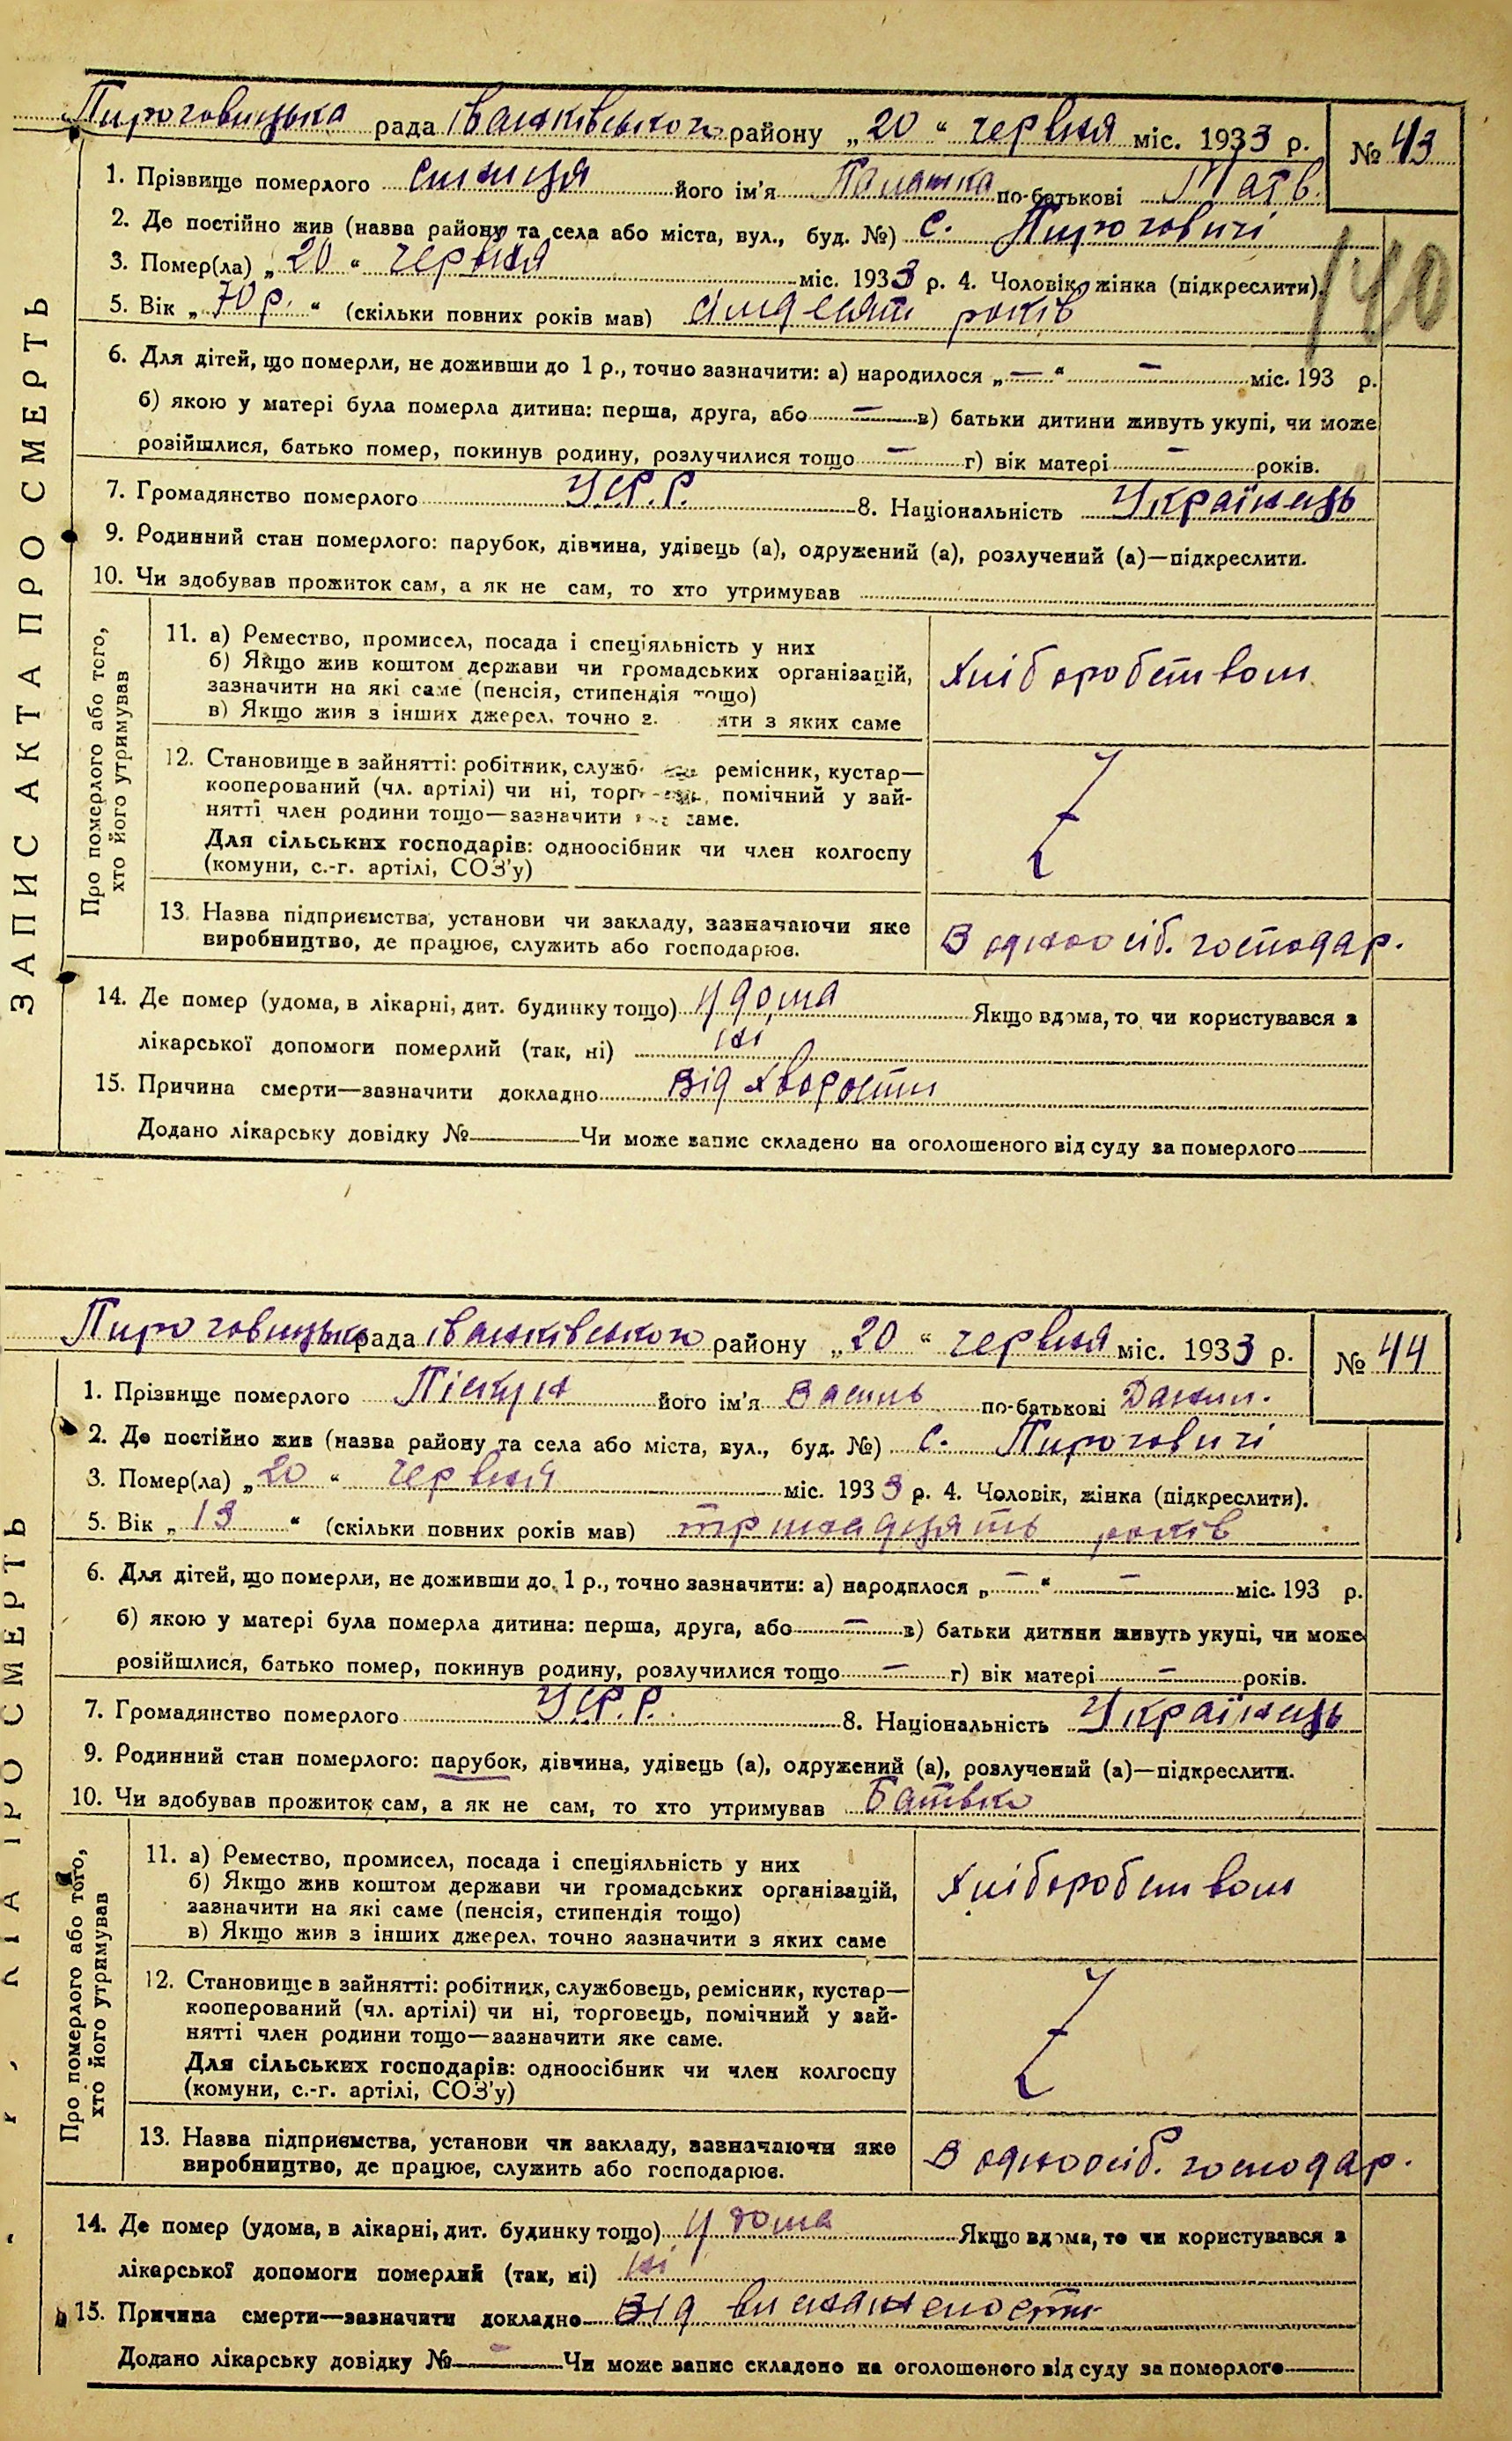 Пироговицька рада Іванківського району „20“ червня міс. 1933 р. № 43
1. Прізвище померлого Синиця його ім'я Палажка по-батькові Матв.
2. Де постійно жив (назва району та села або міста, вул., буд. №) с. Пироговичі
3. Помер(ла) „20“ червня міс. 1933 р. 4. Чоловік, жінка (підкреслити).
140
5. Вік „70 р.“ (скільки повних років мав) сімдесят років
6. Для дітей, що померли, не доживши до 1 р., точно зазначити: а) народилося „—“ — міс. 193 р.
б) якою у матері була померла дитина: перша, друга, або — в) батьки дитини живуть укупі, чи може
розійшлися, батько помер, покинув родину, розлучилися тощо — г) вік матері — років.
7. Громадянство померлого У.С.Р.Р. 8. Національність Українець
9. Родинний стан померлого: парубок, дівчина, удівець (а), одружений (а), розлучений (а)—підкреслити.
10. Чи здобував прожиток сам, а як не сам, то хто утримував
ЗАПИС АКТА ПРО СМЕРТЬ
Про померлого або того,
хто його утримував
11. а) Ремество, промисел, посада і спеціяльність у них
б) Якщо жив коштом держави чи громадських організацій,
зазначити на які саме (пенсія, стипендія тощо)
в) Якщо жив з інших джерел, точно з яких саме
хліборобством
12. Становище в зайнятті: робітник, служб ремісник, кустар—
кооперований (чл. артілі) чи ні, торг помічний у зай-
нятті член родини тощо—зазначити саме.
Для сільських господарів: одноосібник чи член колгоспу
(комуни, с.-г. артілі, СОЗ'у)
13. Назва підприємства, установи чи закладу, зазначаючи яке
виробництво, де працює, служить або господарює.
В одноосіб. господар.
14. Де помер (удома, в лікарні, дит. будинку тощо) удома Якщо вдома, то чи користувався з
лікарської допомоги померлий (так, ні) ні
15. Причина смерти—зазначити докладно від хворости
Додано лікарську довідку № Чи може запис складено на оголошеного від суду за померлого
Пироговицька рада Іванківського району „20“ червня міс. 1933 р. № 44
1. Прізвище померлого Піскун його ім'я Василь по-батькові Данил.
2. Де постійно жив (назва району та села або міста, вул., буд. №) с. Пироговичі
3. Помер(ла) „20“ червня міс. 1933 р. 4. Чоловік, жінка (підкреслити).
5. Вік „13“ (скільки повних років мав) тринадцять років
6. Для дітей, що померли, не доживши до 1 р., точно зазначити: а) народилося „—“ — міс. 193 р.
б) якою у матері була померла дитина: перша, друга, або — в) батьки дитини живуть укупі, чи може
розійшлися, батько помер, покинув родину, розлучилися тощо — г) вік матері — років.
7. Громадянство померлого У.С.Р.Р. 8. Національність Українець
9. Родинний стан померлого: парубок, дівчина, удівець (а), одружений (а), розлучений (а)—підкреслити.
10. Чи здобував прожиток сам, а як не сам, то хто утримував Батько
Про померлого або того,
хто його утримував
11. а) Ремество, промисел, посада і спеціяльність у них
б) Якщо жив коштом держави чи громадських організацій,
зазначити на які саме (пенсія, стипендія тощо)
в) Якщо жив з інших джерел, точно зазначити з яких саме
хліборобством
12. Становище в зайнятті: робітник, службовець, ремісник, кустар—
кооперований (чл. артілі) чи ні, торговець, помічний у зай-
нятті член родини тощо—зазначити яке саме.
Для сільських господарів: одноосібник чи член колгоспу
(комуни, с.-г. артілі, СОЗ'у)
13. Назва підприємства, установи чи закладу, зазначаючи яке
виробництво, де працює, служить або господарює.
В одноосіб. господар.
14. Де помер (удома, в лікарні, дит. будинку тощо) у дома Якщо вдома, то чи користувався з
лікарської допомоги померлий (так, ні) ні
15. Причина смерти—зазначити докладно Від виснажености
Додано лікарську довідку № — Чи може запис складено на оголошеного від суду за померлого